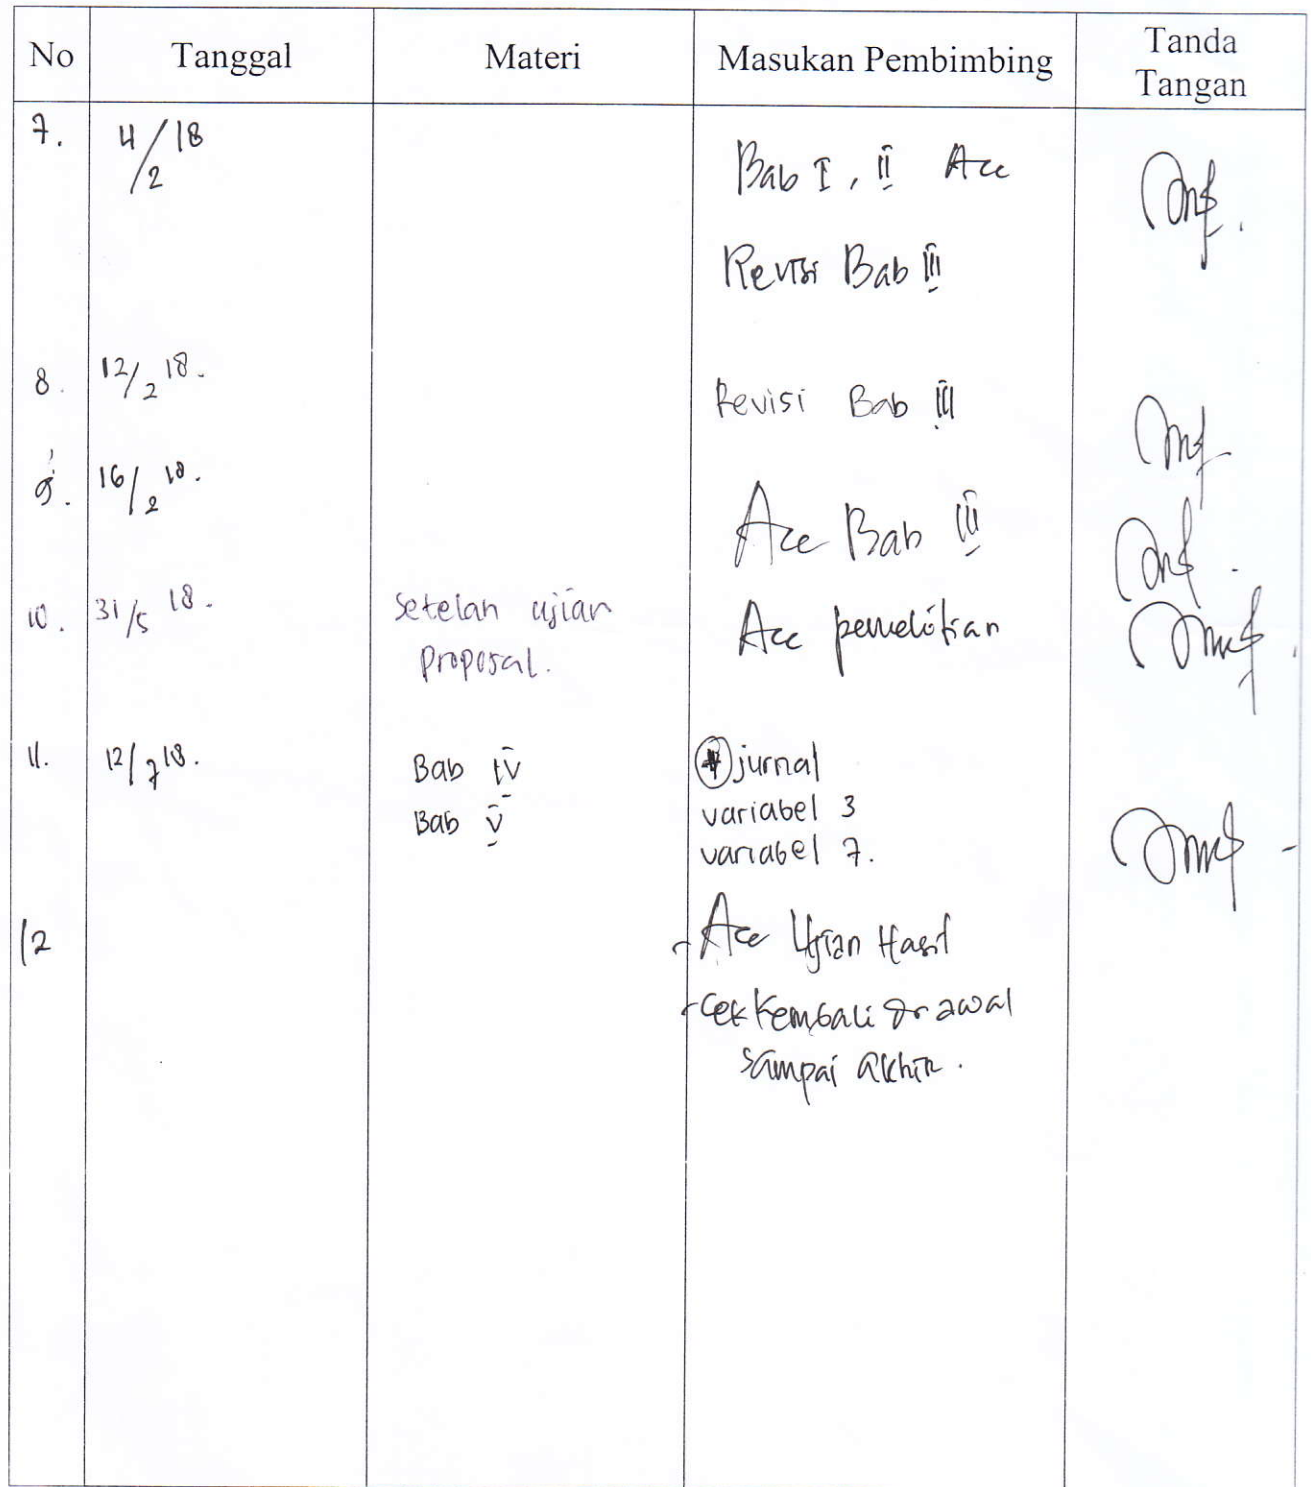 No Tanggal Materi Masukan Pembimbing Tanda Tangan
7. 4/2 18 Bab I, II Acc
Revisi Bab III
8. 12/2 18. Revisi Bab III
9. 16/2 18. Acc Bab III
10. 31/5 18. Setelah ujian Acc penelitian
proposal.
11. 12/7 18. Bab IV jurnal
Bab V variabel 3
variabel 7.
12 - Acc Ujian Hasil
- Cek kembali dr awal
sampai akhir.